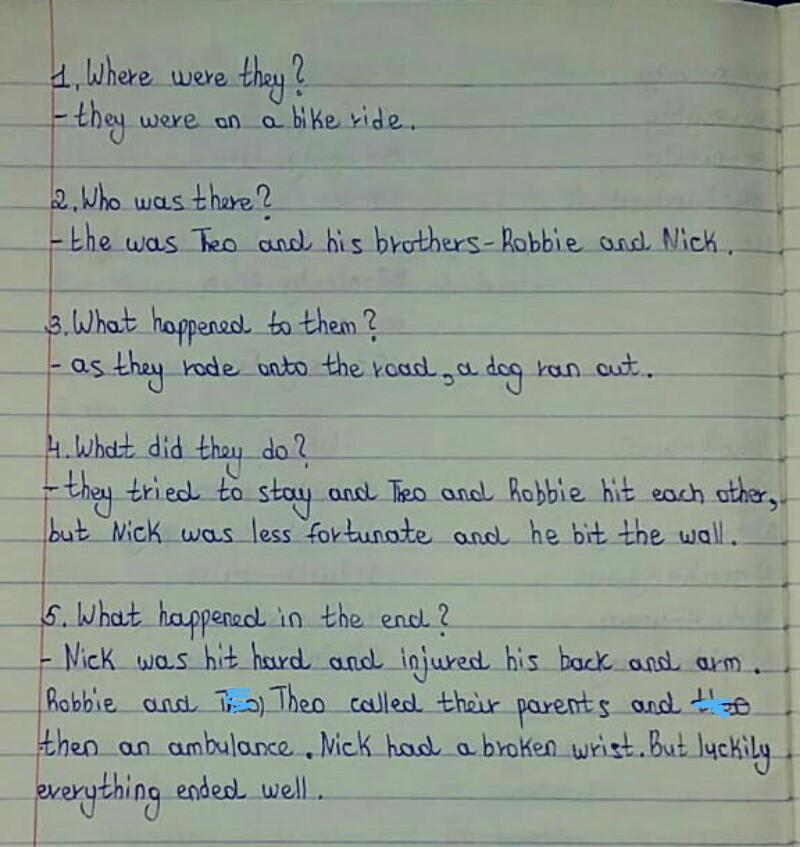 1. Where were they?
- they were on a bike ride.
2. Who was there?
- the was Teo and his brothers - Robbie and Nick.
3. What happened to them?
- as they rode onto the road, a dog ran out.
4. What did they do?
- they tried to stay and Teo and Robbie hit each other,
but Nick was less fortunate and he bit the wall.
5. What happened in the end?
- Nick was hit hard and injured his back and arm.
Robbie and Theo called their parents and
then an ambulance. Nick had a broken wrist. But luckily
everything ended well.